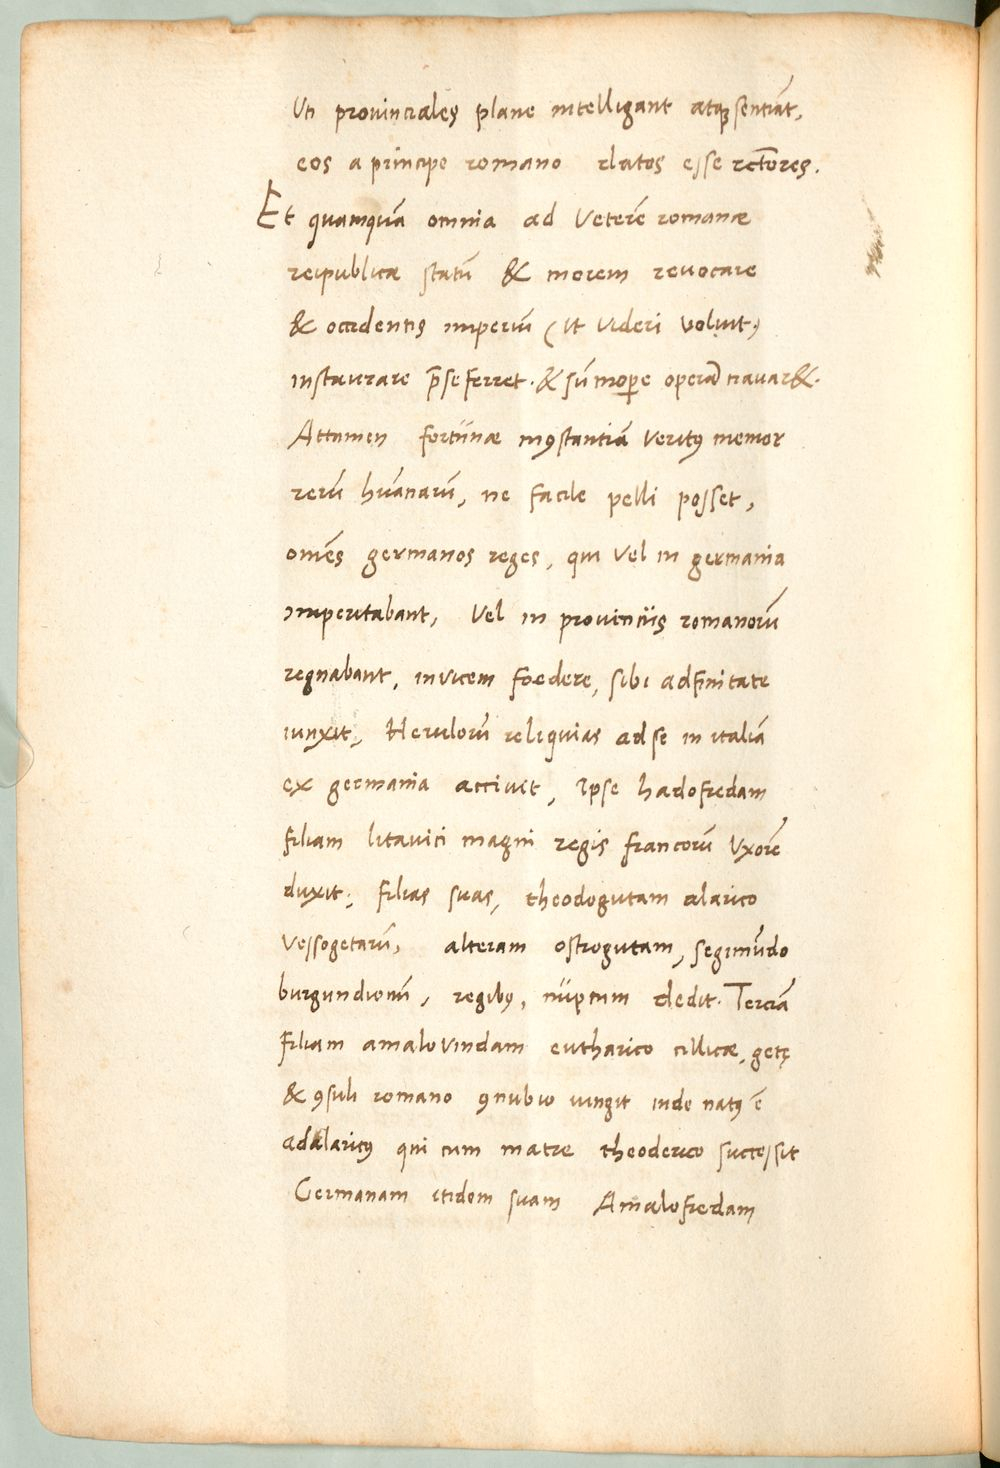 Uti provinciales plane intelligant atqꝫ sentiāt,
eos a principe romano datos esse rectores.
Et quamquā omnia ad Veterē romanæ
reipublicæ statū & morem revocare
& occidentis imperiū (ut videri voluit)
instaurare p̄se ferret. & sūmoꝑe operā navar&.
Attamen fortŭnæ inꝯstantiā veritꝰ memor
rerū hūanarū, ne facile pelli posset,
omēs germanos reges, qui vel in germania
imperitabant, vel in provinciis romanorū
regnabant, invicem foedere, sibi adfinitate
iunxit, Herulorū reliquias ad se in italiā
ex germania accivit, Ipse hadofredam
filiam litavici magni regis francorū Uxorē
duxit; filias suas, theodogutam alarico
Vessogetarū, alteram ostrogutam, segimūdo
burgundionū, regibꝰ, nŭptum dedit. Terciā
filiam amalovindam eutharico cillicæ, getę
& ꝯsuli romano ꝯnubio iungit inde natꝰ ē
adalaricꝰ qui cum matre theoderico successit
Germanam itidem suam Amalofredam